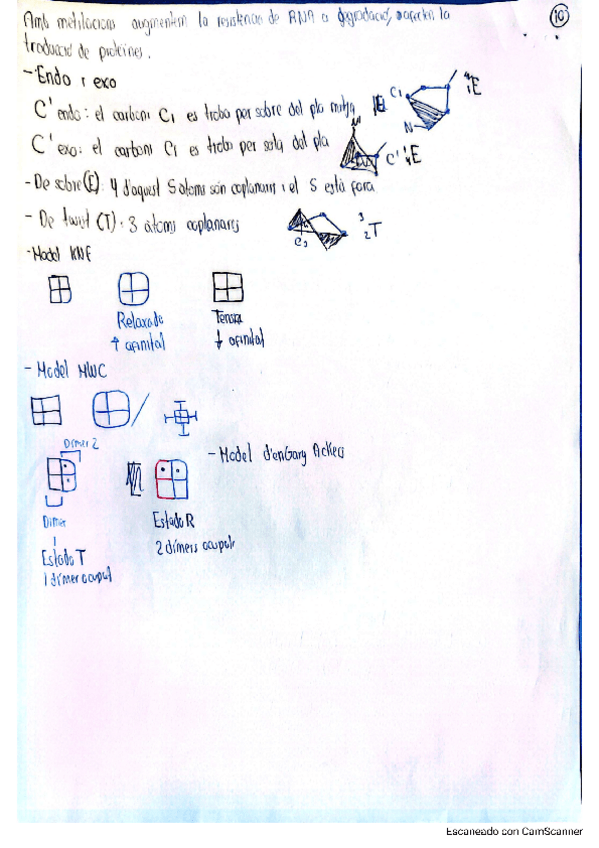 Amb metilacions augmenten la resistència de RNA a degradació, afecten la
10
traducció de proteïnes.
- Endo i exo
C' endo: el carboni C1 es troba per sobre del pla mitjà
C1
N
E
C' exo: el carboni C1 es troba per sota del pla
C'
E
- De sobre (E): 4 d'aquest 5 àtoms són coplanaris i el 5 està fora
- De twist (T): 3 àtoms coplanaris
3
2T
- Model KNF
Relaxada
↑ afinitat
Tensa
↓ afinitat
- Model MWC
Dímer 2
Dímer 1
Estado T
1 dímer ocupat
- Model d'en Gary Ackers
Estado R
2 dímers ocupats
Escaneado con CamScanner